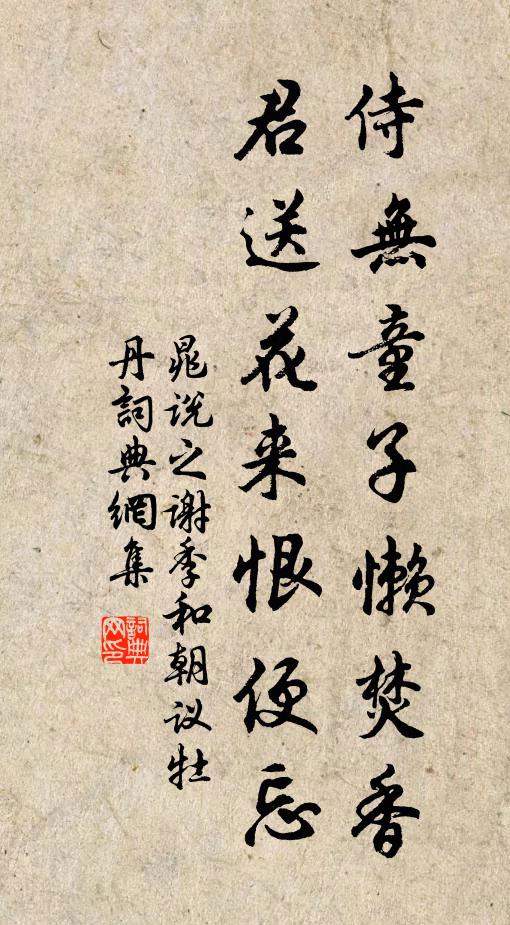 侍無童子懶焚香
君送花来恨便忘
晁说之谢季和朝议牡
丹詞典網集
詞典
网印